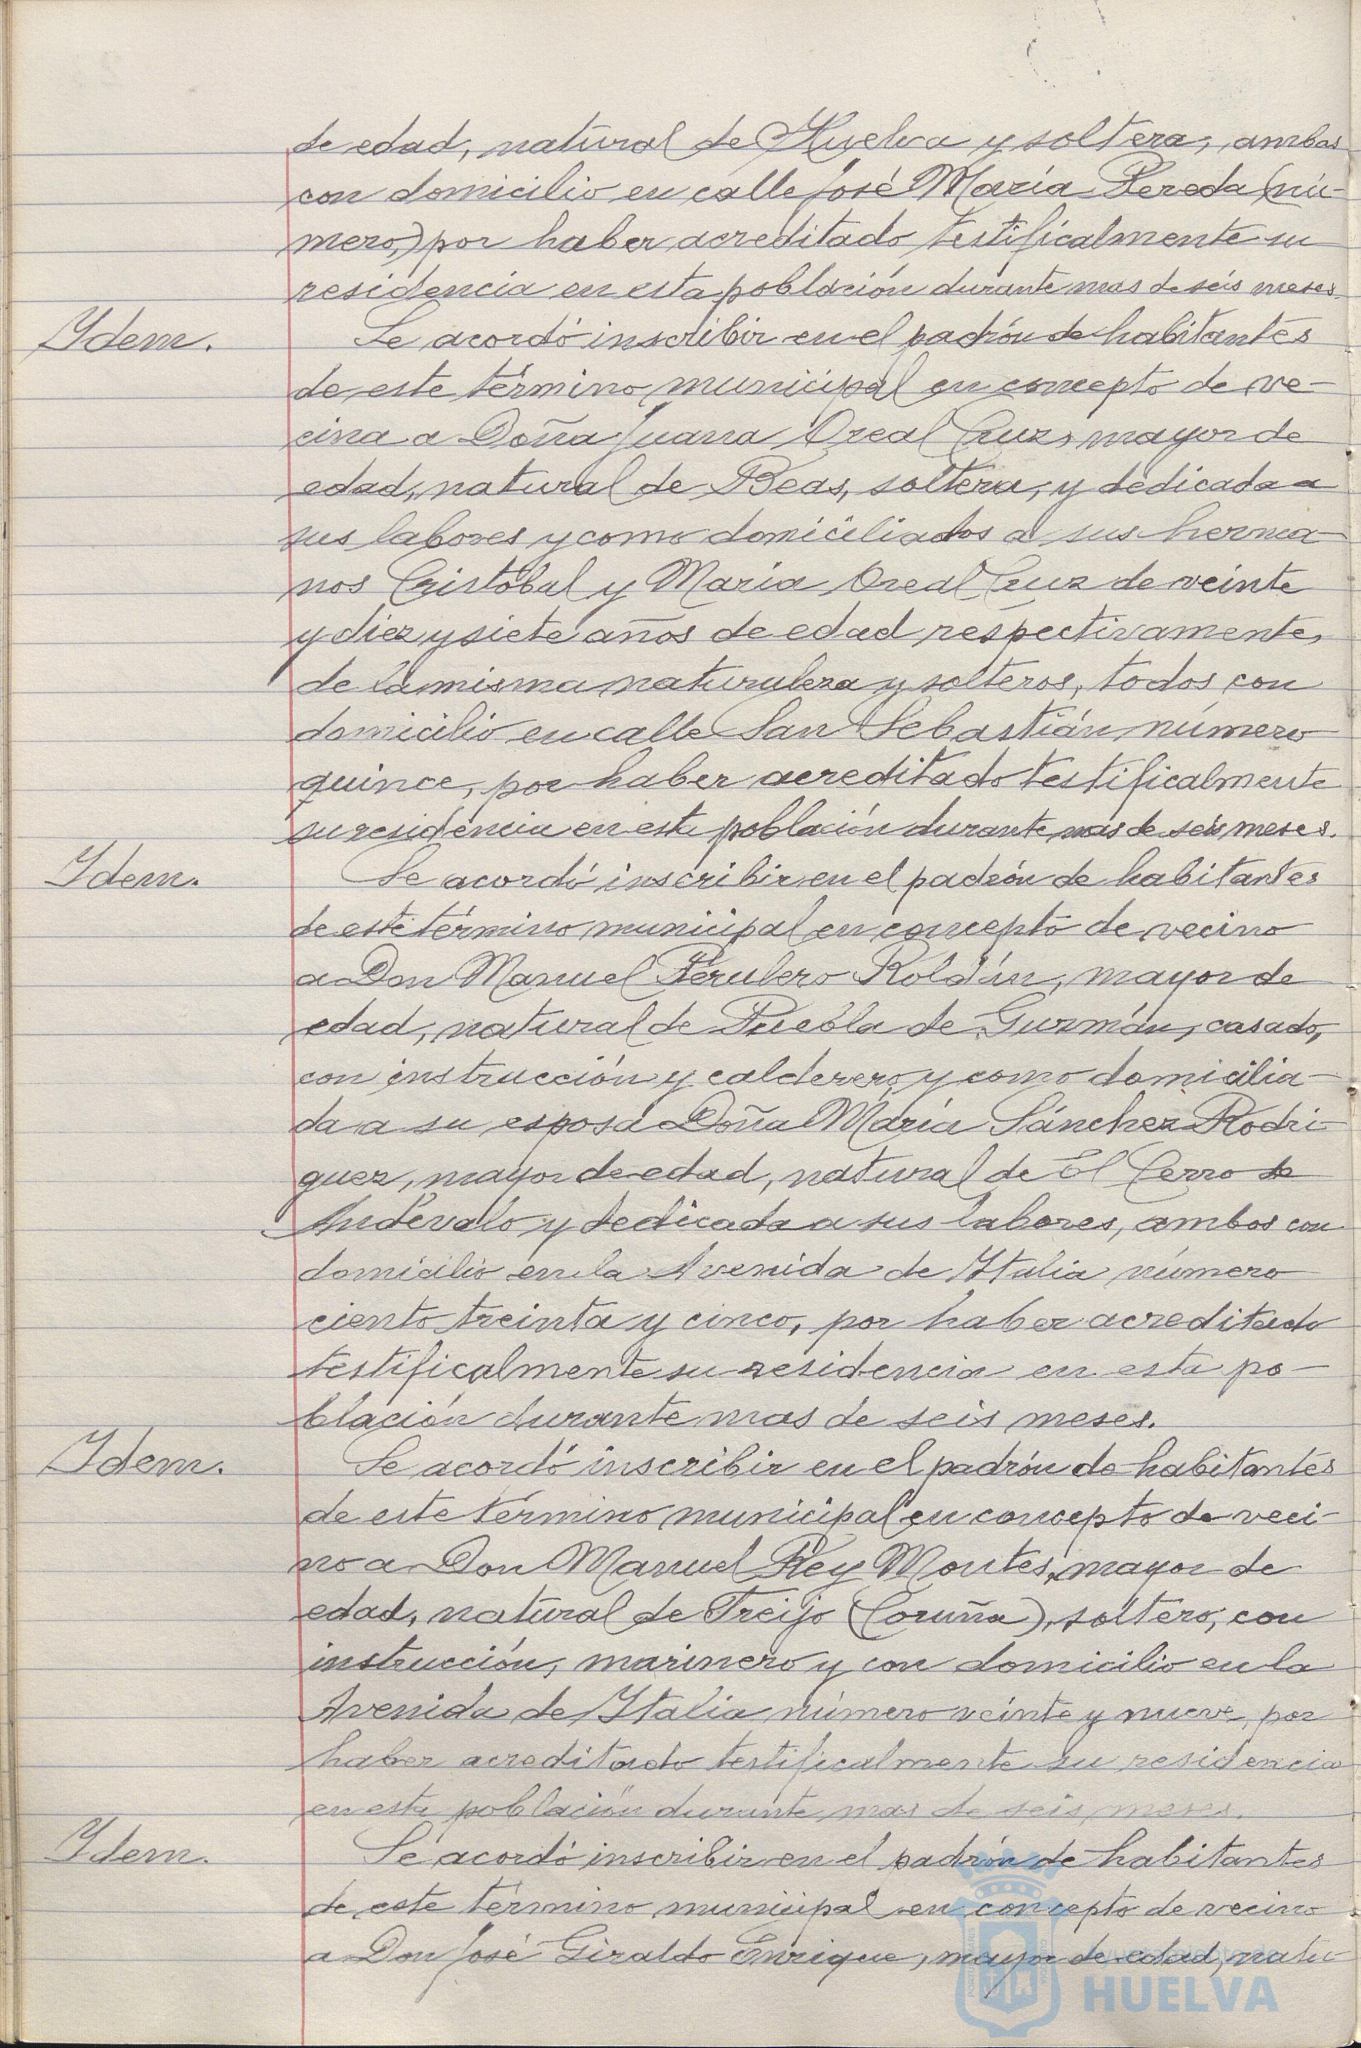 de edad, natural de Huelva y soltera, ambas
con domicilio en calle José María Pereda (nú-
mero,) por haber acreditado testificalmente su
residencia en esta población durante mas de seis meses.
Ydem.
Se acordó inscribir en el padrón de habitantes
de este término municipal en concepto de ve-
cina a Doña Juana Oreal Cruz, mayor de
edad, natural de Beas, soltera, y dedicada a
sus labores y como domiciliados a sus herma-
nos Cristóbal y María Oreal Cruz de veinte
y diez y siete años de edad respectivamente,
de la misma naturaleza y solteros, todos con
domicilio en calle San Sebastián número
quince, por haber acreditado testificalmente
su residencia en esta población durante mas de seis meses.
Ydem.
Se acordó inscribir en el padrón de habitantes
de este término municipal en concepto de vecino
a Don Manuel Ferulero Roldán, mayor de
edad, natural de Puebla de Guzmán, casado,
con instrucción y calderero, y como domicilia-
da a su esposa Doña María Sánchez Rodri-
guez, mayor de edad, natural de El Cerro de
Andévalo y dedicada a sus labores, ambos con
domicilio en la Avenida de Italia número
ciento treinta y cinco, por haber acreditado
testificalmente su residencia en esta po-
blación durante mas de seis meses.
Ydem.
Se acordó inscribir en el padrón de habitantes
de este término municipal en concepto de veci-
no a Don Manuel Rey Montes, mayor de
edad, natural de Treijo (Coruña), soltero, con
instrucción, marinero y con domicilio en la
Avenida de Italia número veinte y nueve, por
haber acreditado testificalmente su residencia
en esta población durante mas de seis meses.
Ydem.
Se acordó inscribir en el padrón de habitantes
de este término municipal en concepto de vecino
a Don José Giraldo Enrique, mayor de edad, natu-
HUELVA